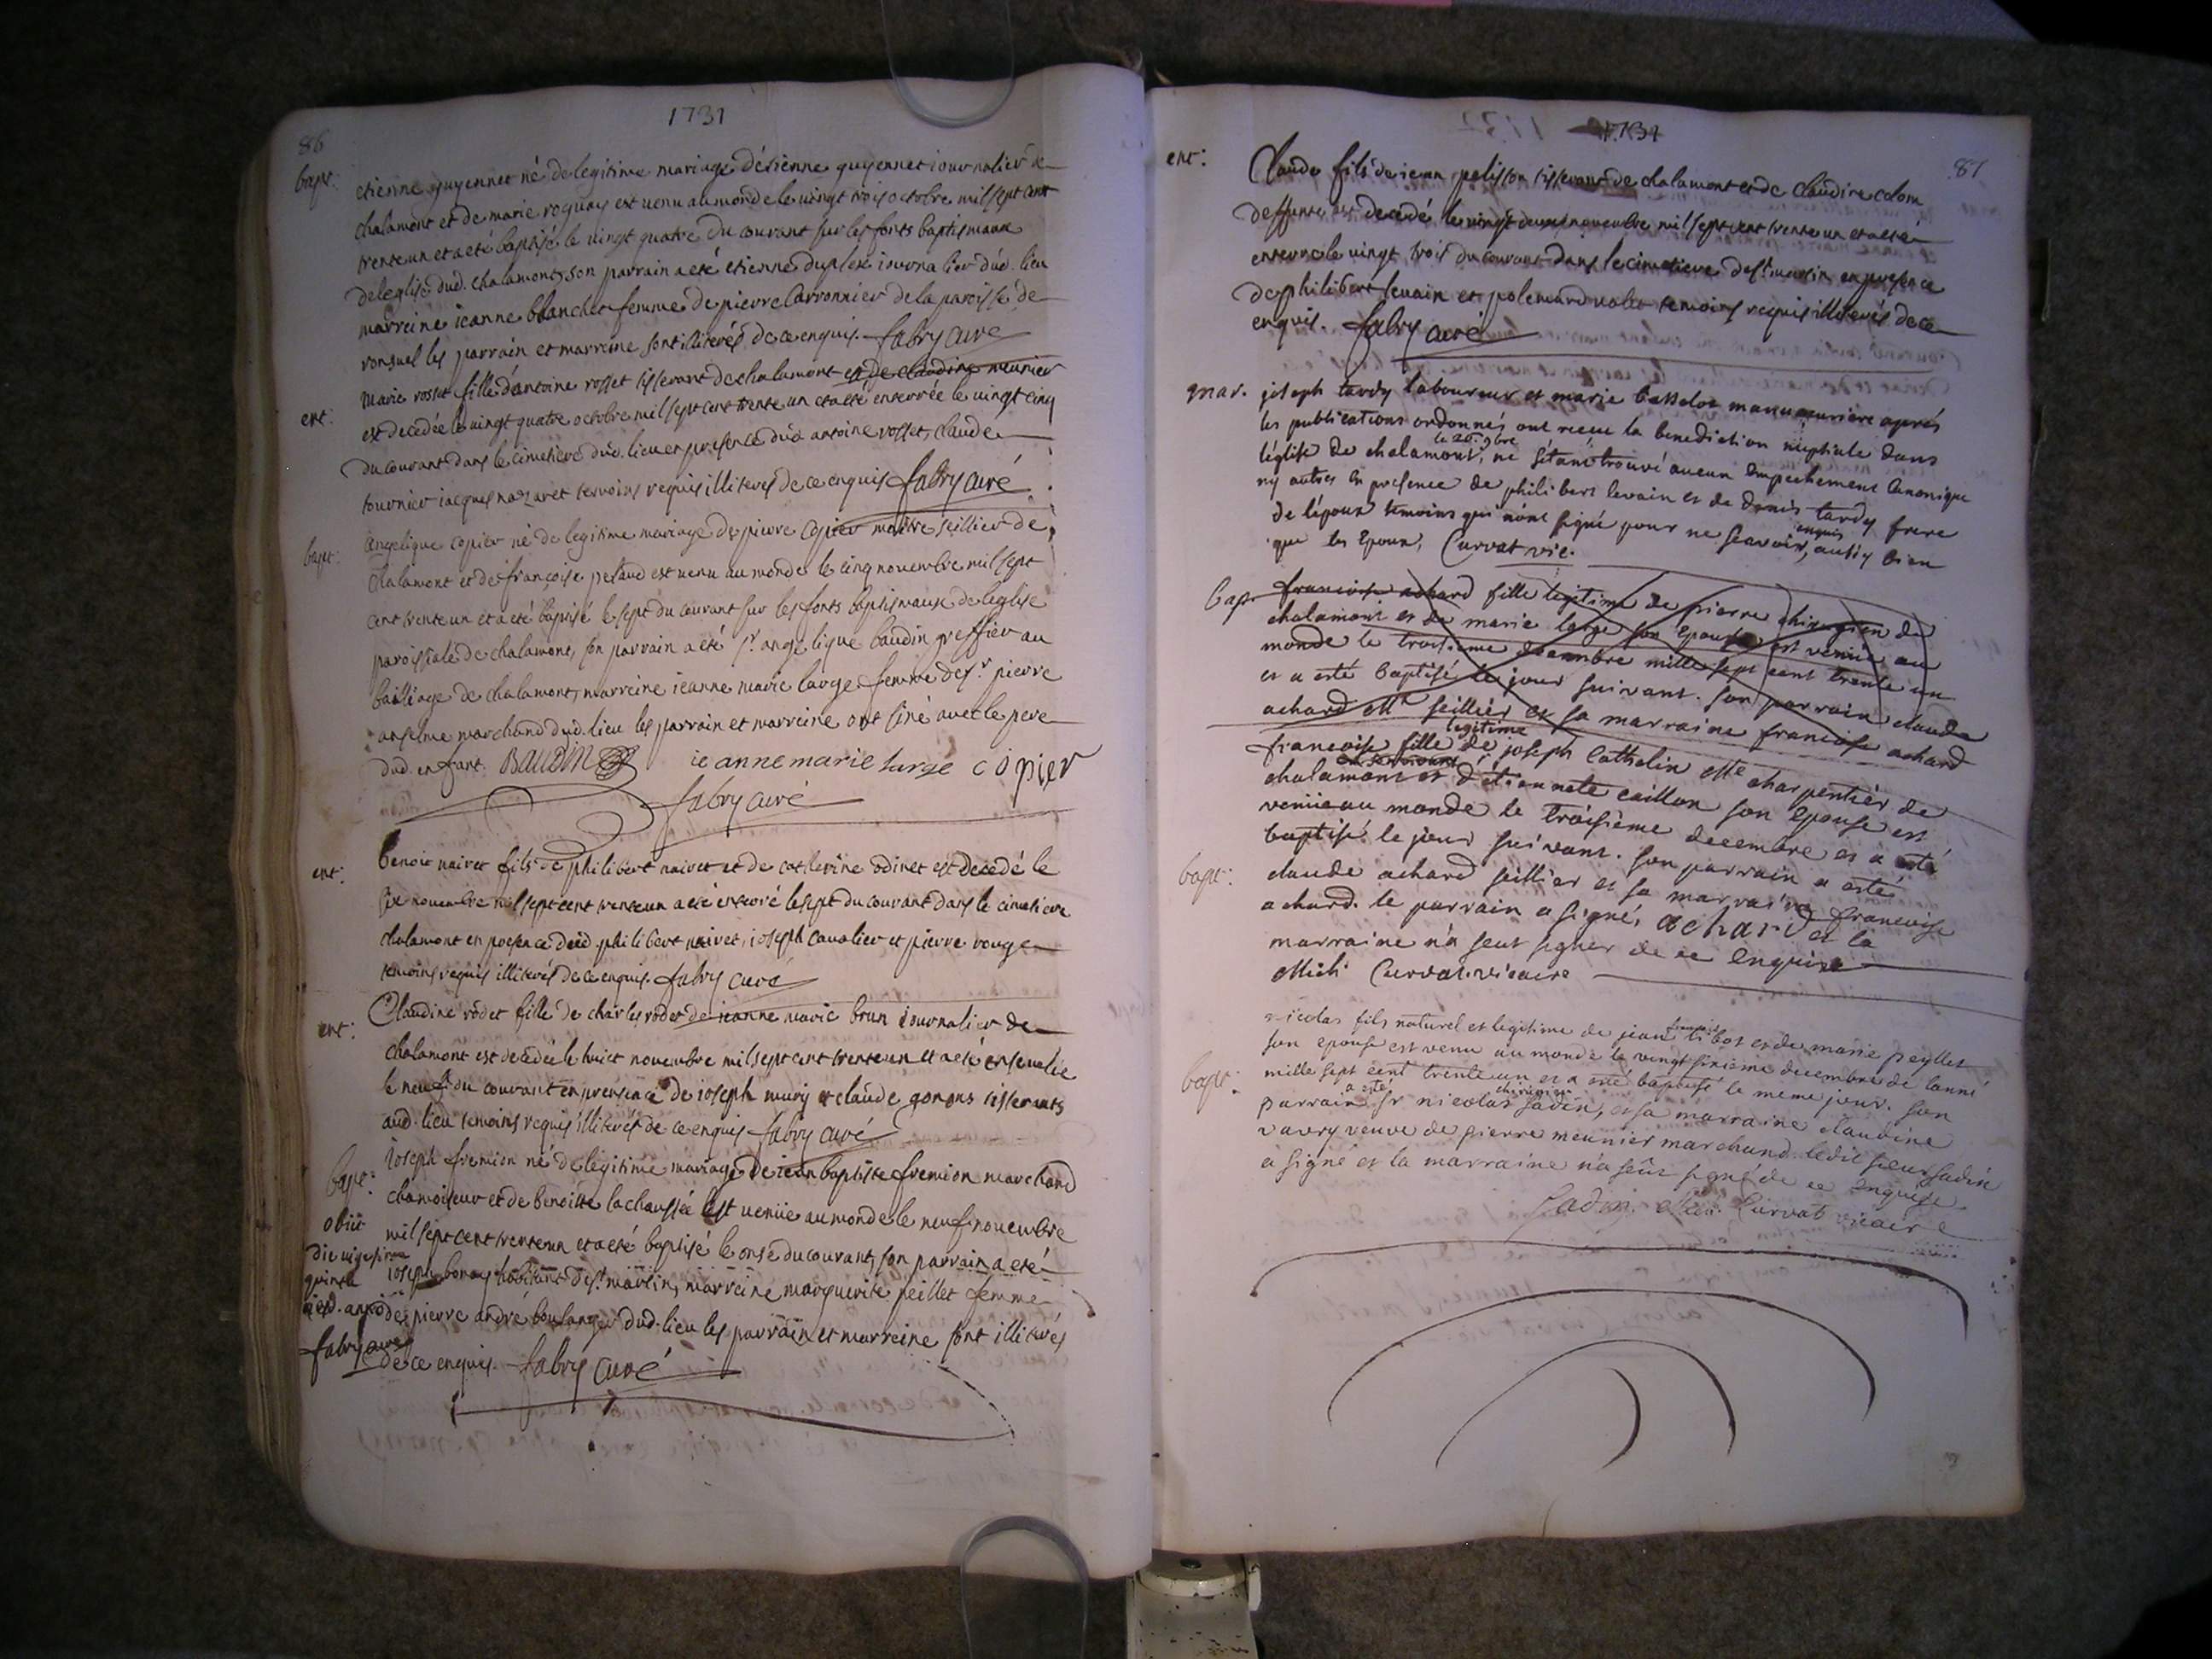 1731
86
bapt:
etienne guyennet né de legitime mariage d'étienne guyennet iournalier de
chalamont et de marie roquas est uenu au monde le uingt trois octobre mil sept cent
trente un et a eté baptisé le uingt quatre du courant sur les fonts baptismaux
de leglise dud. chalamont, son parrain a eté etienne duplex iournalier dud. lieu
marreine ieanne blanchet femme de pierre Carronnier de la paroisse de
ronsuel les parrain et marreine sont illiterés de ce enquis. fabry curé
ent:
Marie rosset fille d'antoine rosset tisserant de chalamont et de claudine meunier
est decedée le uingt quatre octobre mil sept cent trente un et a eté enterrée le uingt cinq
du courant dans le cimetiere dud. lieu en presence dud. antoine rosset, claude
tournier iacques nazaret temoins requis illiterés de ce enquis fabry curé
bapt:
Angelique copier né de legitime mariage de pierre copier maitre seillier de
chalamont et de françoise petaud est uenu au monde le cinq nouembre mil sept
cent trente un et a eté baptisé le sept du courant sur les fonts baptismaux de leglise
paroissiale de chalamont, son parrain a eté sr angelique baudin greffier au
bailliage de chalamont, marreine ieanne marie large femme de sr pierre
anselme marchand dud. lieu les parrain et marreine ont siné auec le pere
dud. enfant. BAUDIN ieanne marie large copier
fabry curé
ent:
benoit naiuet fils de philibert naiuet et de catherine odinet est decedé le
six nouembre mil sept cent trente un a eté enterré le sept du courant dans le cimetiere
chalamont en presence dud. philibert naiuet, ioseph caualier et pierre rouge
temoins requis illiterés de ce enquis. fabry curé
ent:
Claudine rodet fille de charles rodet de ieanne marie brun iournalier de
chalamont est decedée le huict nouembre mil sept cent trente un et a eté enseuelie
le neuf du courant en presence de ioseph mury et claude gonons tisserants
aud. lieu temoins requis illiterés de ce enquis fabry curé
bapt:
ioseph fremion né de legitime mariage de iean baptiste fremion marchand
chamoiseur et de benoitte lachaussée est uenüe au monde le neuf nouembre
mil sept cent trente un et a eté baptisé le onse du courant, son parrain a eté
ioseph bonay habitant de st martin, marreine marguerite peillet femme
de pierre andré boulanger dud. lieu les parrain et marreine sont illiterés
de ce enquis. fabry curé
obiit
die uigesima
quinta
fabry curé
1731
87
ent:
Claude fils de iean pelisson tisserant de chalamont et de claudine colom
deffunte est decedé le uingt deux nouembre mil sept cent trente un et a eté
enterré le uingt trois du courant dans le cimetiere de st martin en presence
de philibert leuain et polemard ualet temoins requis illiterés de ce
enquis. fabry curé
mar.
joseph tardy laboureur et marie Casselot manuouuriere aprés
les publications ordonnés ont receu la benediction nuptiale dans
léglise de chalamont, le 20. 9bre ne sétant trouvé aucun empechement Canonique
ny autres en presence de philibert levain et de denis tardy frere
de lépoux temoins qui nónt signé pour ne sçavoir, enquis aussy bien
que les epoux, Curvat vic.
bap.
francoise achard fille legitime de pierre chirurgien de
chalamont et de marie large son epouse est venüe au
monde le troisieme decembre mille sept cent trente un
et a esté baptisé le jour suivant. son parrain claude
achard mtr seillier et sa marraine francoise achard
francoise fille legitime de joseph Cathelin mtr charpentier de
chalamont et d'étiennete caillon son epouse est
venüe au monde le troisiéme decembre et a esté
baptisé le jour suivant. son parrain a esté
bapt:
claude achard seillier et sa marraine francoise
achard. le parrain a signé, achard et la
marraine n'a seut signer de ce enquise
Curvat vicaire
bapt:
nicolas fils naturel et legitime de jean françois tibot et de marie peyllet
son epouse est venu au monde le vingt sixieme decembre de lanné
mille sept cent trente un et a esté baptisé le meme jour. son
parrain a esté sr nicolas sadin, chirurgien et sa marraine claudine
ravery veuve de pierre meunier marchand. ledit sieur sadin
a signé et la marraine n'a seüt signé de ce enquise.
Sadin. Curvat vicaire